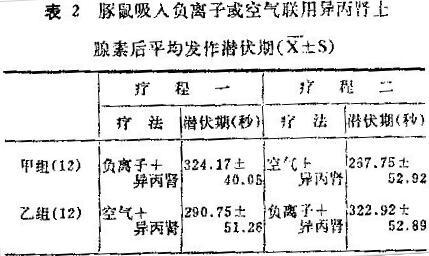 表 2 豚鼠吸入负离子或空气联用异丙肾上
腺素后平均发作潜伏期(X̄±S)
疗程一 疗程二
疗法 潜伏期(秒) 疗法 潜伏期(秒)
甲组(12) 负离子+ 324.17± 空气+ 267.75±
异丙肾 40.05 异丙肾 52.92
乙组(12) 空气+ 290.75± 负离子+ 322.92±
异丙肾 51.28 异丙肾 52.89